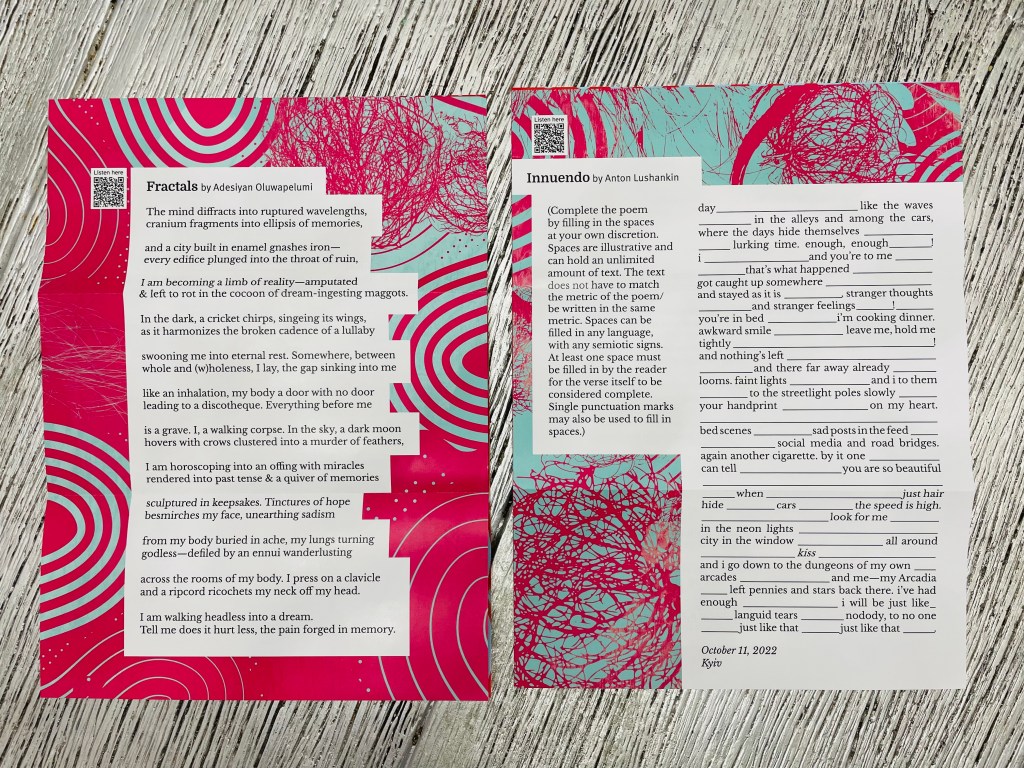 Listen here
Fractals by Adesiyan Oluwapelumi
The mind diffracts into ruptured wavelengths,
cranium fragments into ellipsis of memories,
and a city built in enamel gnashes iron—
every edifice plunged into the throat of ruin,
I am becoming a limb of reality—amputated
& left to rot in the cocoon of dream-ingesting maggots.
In the dark, a cricket chirps, singeing its wings,
as it harmonizes the broken cadence of a lullaby
swooning me into eternal rest. Somewhere, between
whole and (w)holeness, I lay, the gap sinking into me
like an inhalation, my body a door with no door
leading to a discotheque. Everything before me
is a grave. I, a walking corpse. In the sky, a dark moon
hovers with crows clustered into a murder of feathers,
I am horoscoping into an offing with miracles
rendered into past tense & a quiver of memories
sculptured in keepsakes. Tinctures of hope
besmirches my face, unearthing sadism
from my body buried in ache, my lungs turning
godless—defiled by an ennui wanderlusting
across the rooms of my body. I press on a clavicle
and a ripcord ricochets my neck off my head.
I am walking headless into a dream.
Tell me does it hurt less, the pain forged in memory.
Listen here
Innuendo by Anton Lushankin
(Complete the poem
by filling in the spaces
at your own discretion.
Spaces are illustrative and
can hold an unlimited
amount of text. The text
does not have to match
the metric of the poem/
be written in the same
metric. Spaces can be
filled in any language,
with any semiotic signs.
At least one space must
be filled in by the reader
for the verse itself to be
considered complete.
Single punctuation marks
may also be used to fill in
spaces.)
day____________________ like the waves
________ in the alleys and among the cars,
where the days hide themselves __________
_____ lurking time. enough, enough_______!
i _______________and you're to me ______
_______that's what happened ___________
got caught up somewhere _______________
and stayed as it is ________, stranger thoughts
________and stranger feelings_______!_____
you're in bed __________i'm cooking dinner.
awkward smile __________ leave me, hold me
tightly _____________________________!
and nothing's left ______________________
________and there far away already _______
looms. faint lights ____________and i to them
_______ to the streetlight poles slowly ______
your handprint _____________on my heart.
___________________________________
bed scenes _________sad posts in the feed ____
___________ social media and road bridges.
again another cigarette. by it one __________
can tell _______________you are so beautiful
___________________________________
_____when ____________________just hair
hide _______ cars ________ the speed is high.
___________________look for me _______
in the neon lights _____________________
city in the window ____________ all around
______________ kiss _________________
and i go down to the dungeons of my own ___
arcades _____________ and me—my Arcadia
____ left pennies and stars back there. i've had
enough ___________ i will be just like_
_____ languid tears _______ nobody, to no one
______just like that ______just like that _____.
October 11, 2022
Kyiv